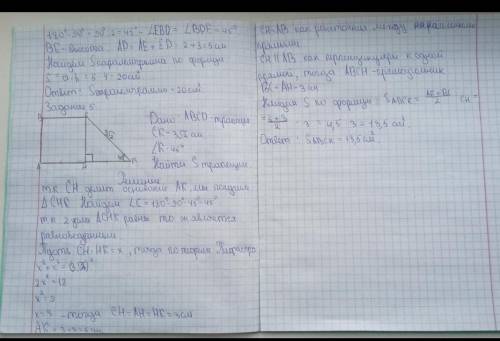 180°-90°=90°:2=45° - ∠EBD = ∠BDE = 45°
BE-высота. AD = AE + ED = 2+3=5 см
Найдем Sпаралелограмма по формуле
S = a·h = 5·4 = 20см²
Ответ: Sпаралелограмма = 20см²
Задание 5.
Дано: ABCK-трапеция
CK = 3√2 см
∠K = 45°
Найти S трапеции.
Решение
т.к. CH делит основание AK, мы получим
ΔCHK. Найдем ∠C = 180°-90°-45°=45°
т.к. 2 угла ΔCHK равны то является
равнобедренным.
Пусть CH=HK=x, тогда по теореме Пифагора
x²+x²=(3√2)²
2x²=18
x²=9
x=3 - тогда CH=AH=HK=3 см
AK = 3+3=6 см
CH=AB как расстояния между параллельными
прямыми
CH||AB как перпендикуляры к одной
прямой, тогда ABCH-прямоугольник
BC=AH=3см
Найдем S по формуле: SABCK = AK+BC/2 · CH =
= 6+3/2 · 3 = 4,5 · 3 = 13,5 см²
Ответ: SABCK = 13,5 см²